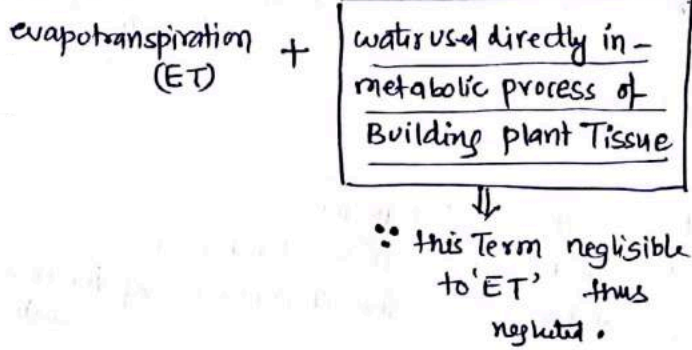 evapotranspiration + water used directly in -
(ET) metabolic process of
Building plant Tissue
⇓
∵ this Term negligible
to 'ET' thus
neglected.